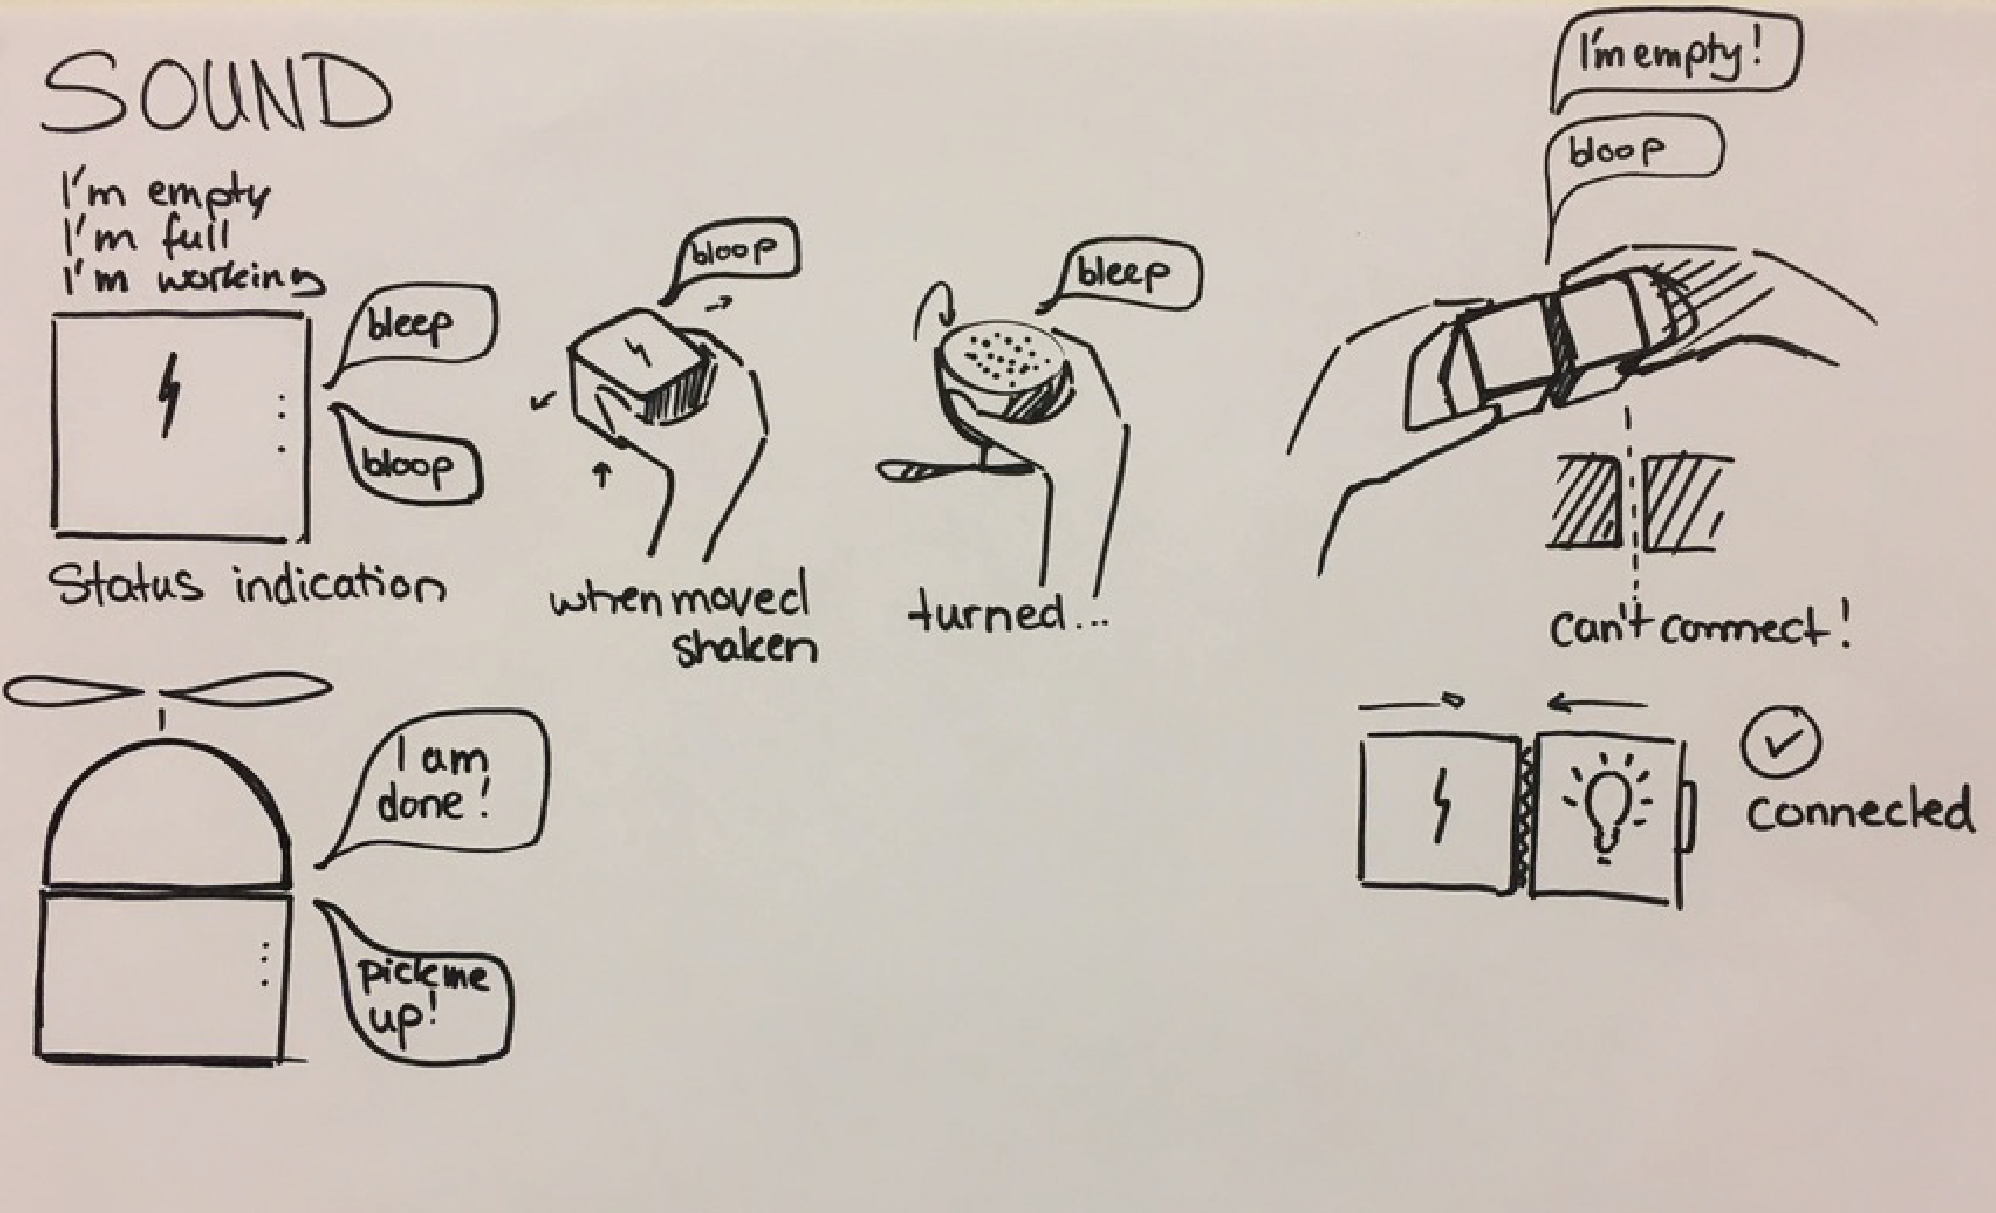 SOUND
I'm empty
I'm full
I'm working
bleep
bloop
Status indication
bloop
when moved
shaken
bleep
turned...
I'm empty!
bloop
can't connect!
connected
I am
done!
pick me
up!